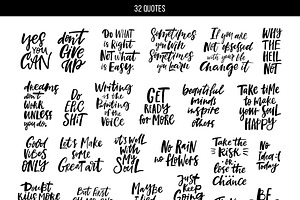 32 QUOTES
yes
you
CAN
don't
GIVE
UP
Do WHAT
is Right
Not what
is Easy.
Sometimes
you Win
Sometimes
you Learn
If you are
Not
with your life
Change it
WHY
THE
HELL
NOT
dreams
don't
WORK
UNLESS
you do.
Do
EPIC
SHIT
Writing
is the
Painting
of the
VOICE
GET
READY
for MORE
beautiful
minds
inspire
others
Take time
to make
your soul
HAPPY
Good
VIBES
ONLY
Let's Make
Some
Great art
it's well
with
My
Soul
No RAIN
no Flowers
Take the
RISK
or
LOSE the
CHANCE
No
Idea
Today
Doubt
KILLS MORE
But first
Maybe
Just
Keep
Going
BE